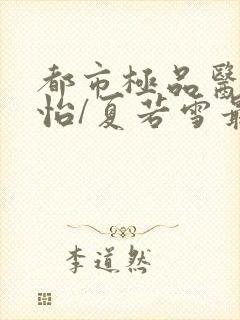 都市極品醫
怡/夏若雪最
李道然